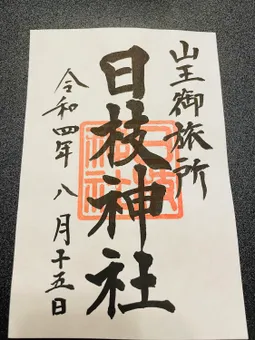 山王御旅所
日枝神社
令和四年八月十五日